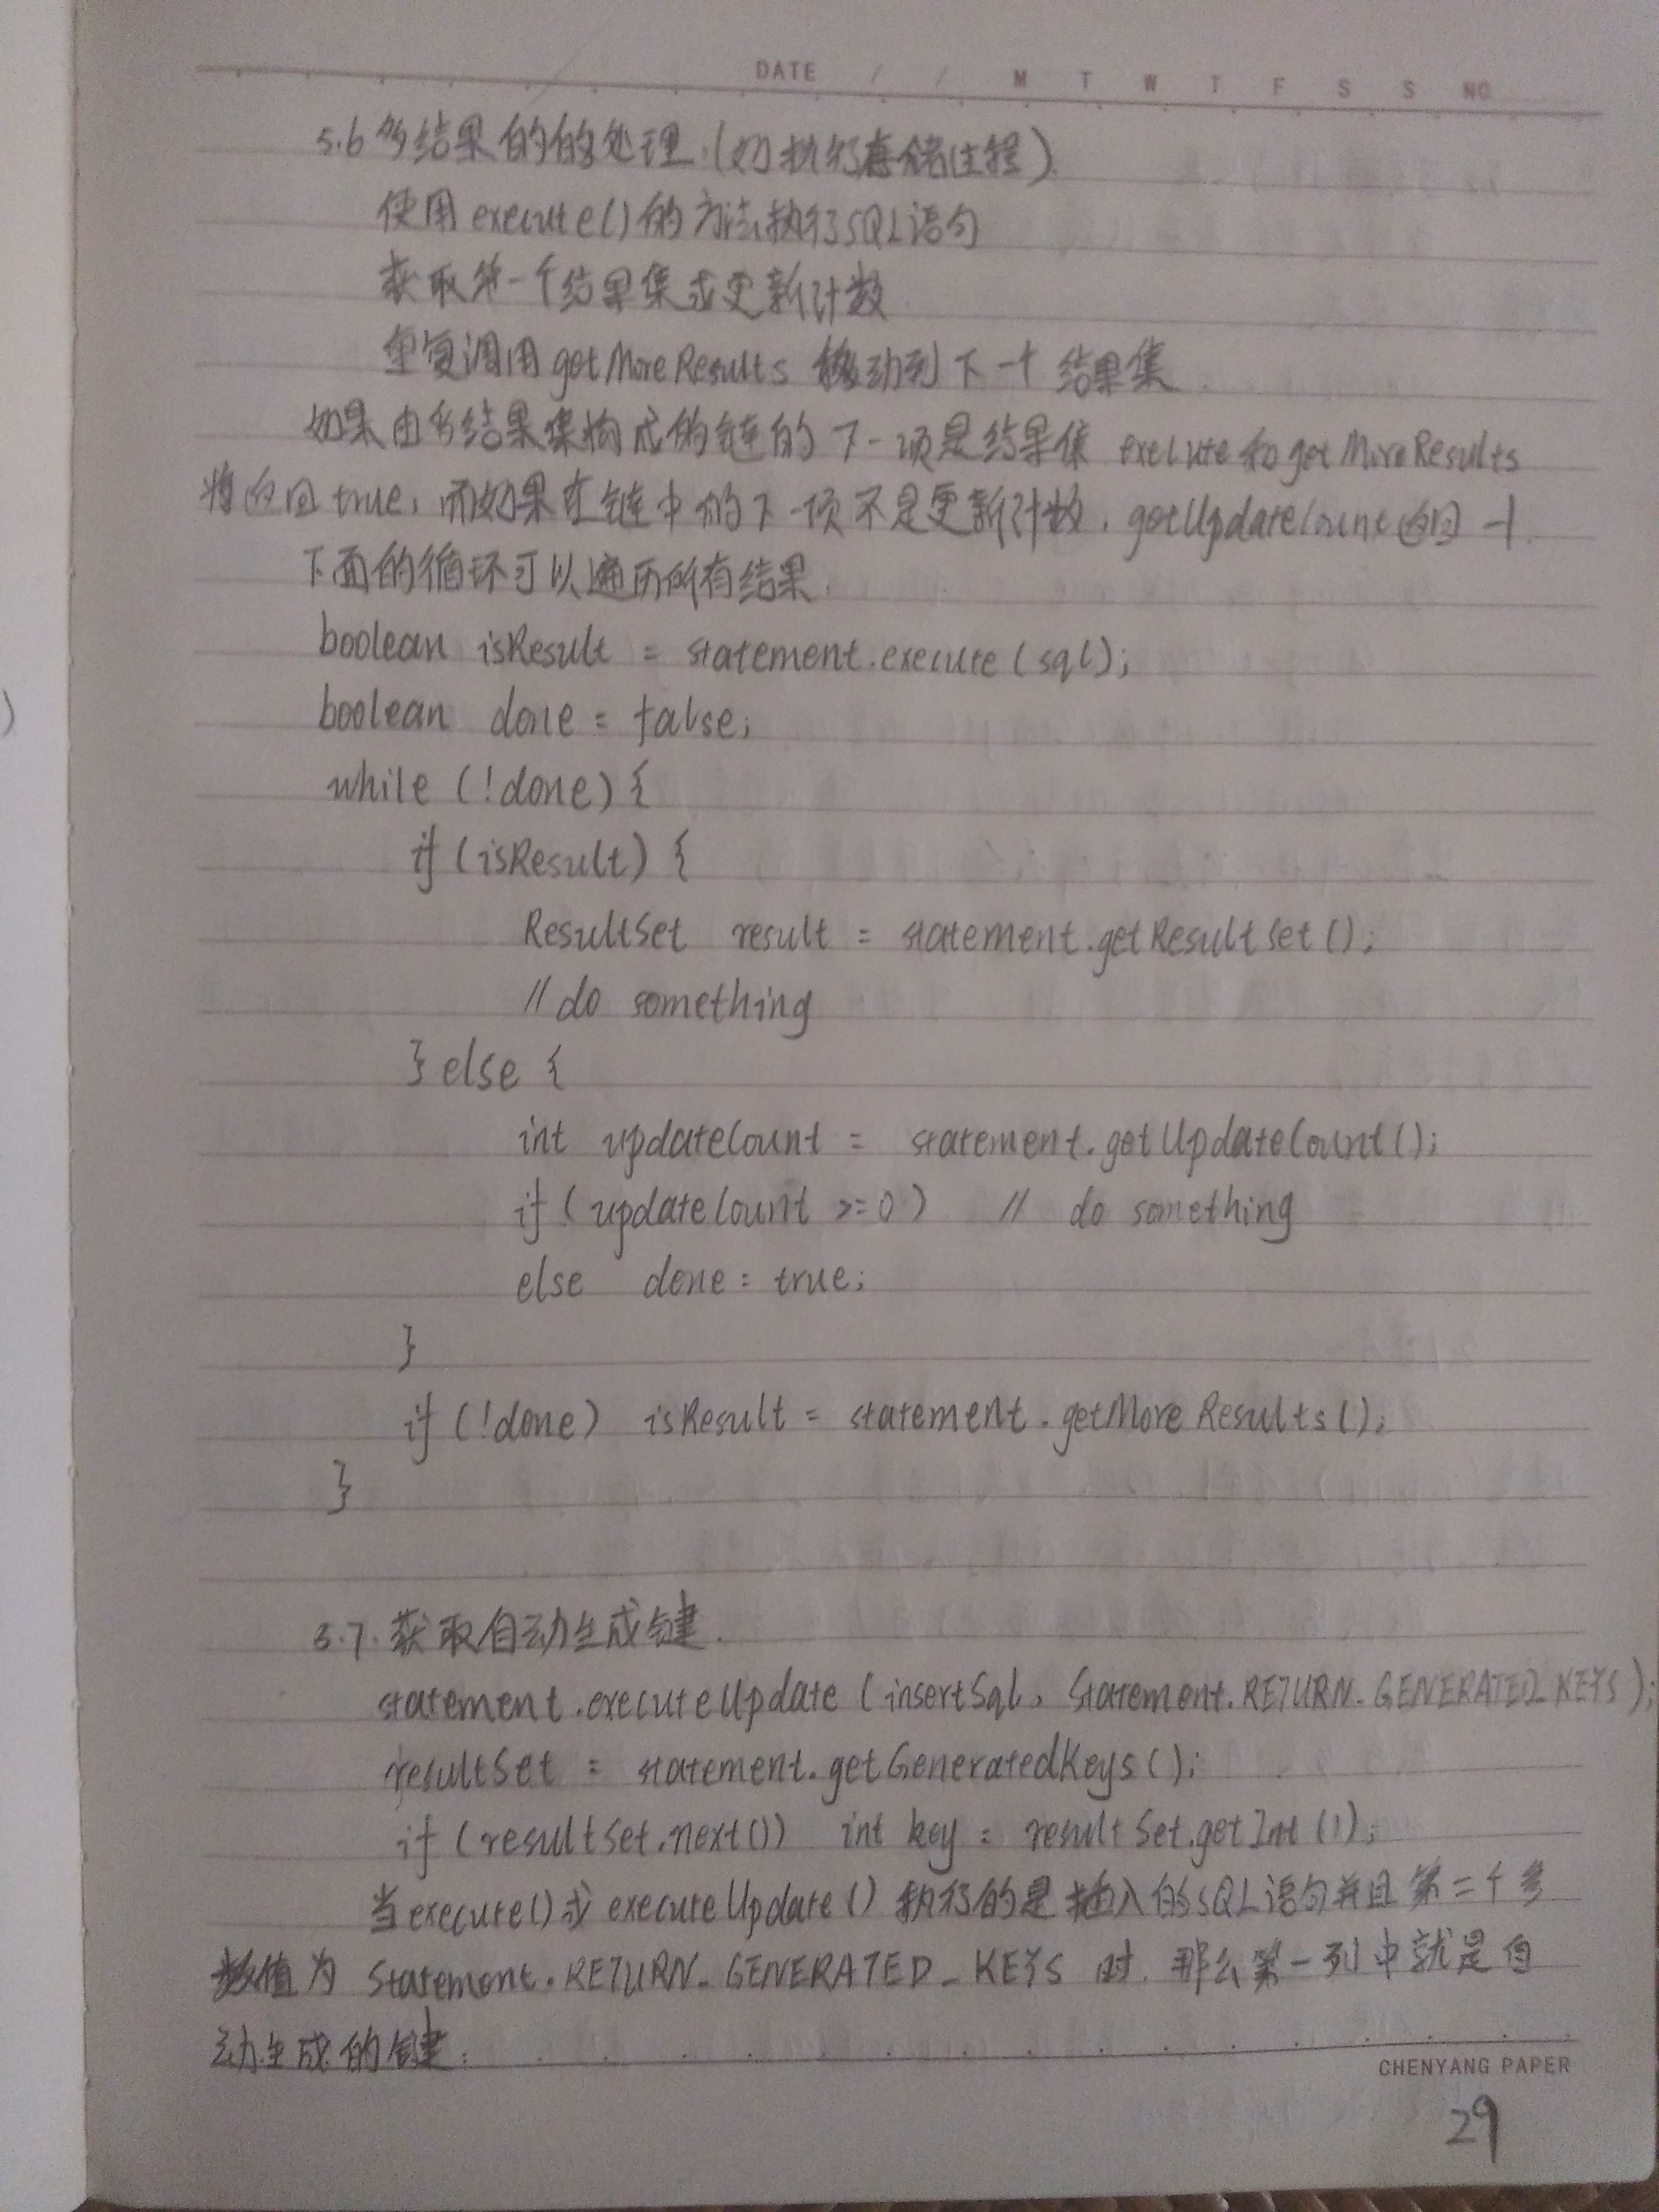 DATE / / M T W T F S S NO
5.6 多结果的的处理.(如执行存储过程)
使用execute()的方法执行SQL语句
获取第一个结果集或更新计数
重复调用getMoreResults 移动到下一个结果集.
如果由多结果集构成的链的下一项是结果集 execute和getMoreResults
将返回true, 而如果在链中的下一项不是更新计数, getUpdateCount返回 -1.
下面的循环可以遍历所有结果.
boolean isResult = statement.execute(sql);
boolean done = false;
while (!done) {
if (isResult) {
ResultSet result = statement.getResultSet();
// do something
} else {
int updateCount = statement.getUpdateCount();
if (updateCount >=0) // do something
else done = true;
}
if (!done) isResult = statement.getMoreResults();
}
5.7. 获取自动生成键.
statement.executeUpdate(insertSql, Statement.RETURN_GENERATED_KEYS);
resultSet = statement.getGeneratedKeys();
if (resultSet.next()) int key = resultSet.getInt(1);
当execute()或executeUpdate()执行的是插入的SQL语句并且第二个参
数值为 Statement.RETURN_GENERATED_KEYS 时. 那么第一列中就是自
动生成的键.
CHENYANG PAPER
29